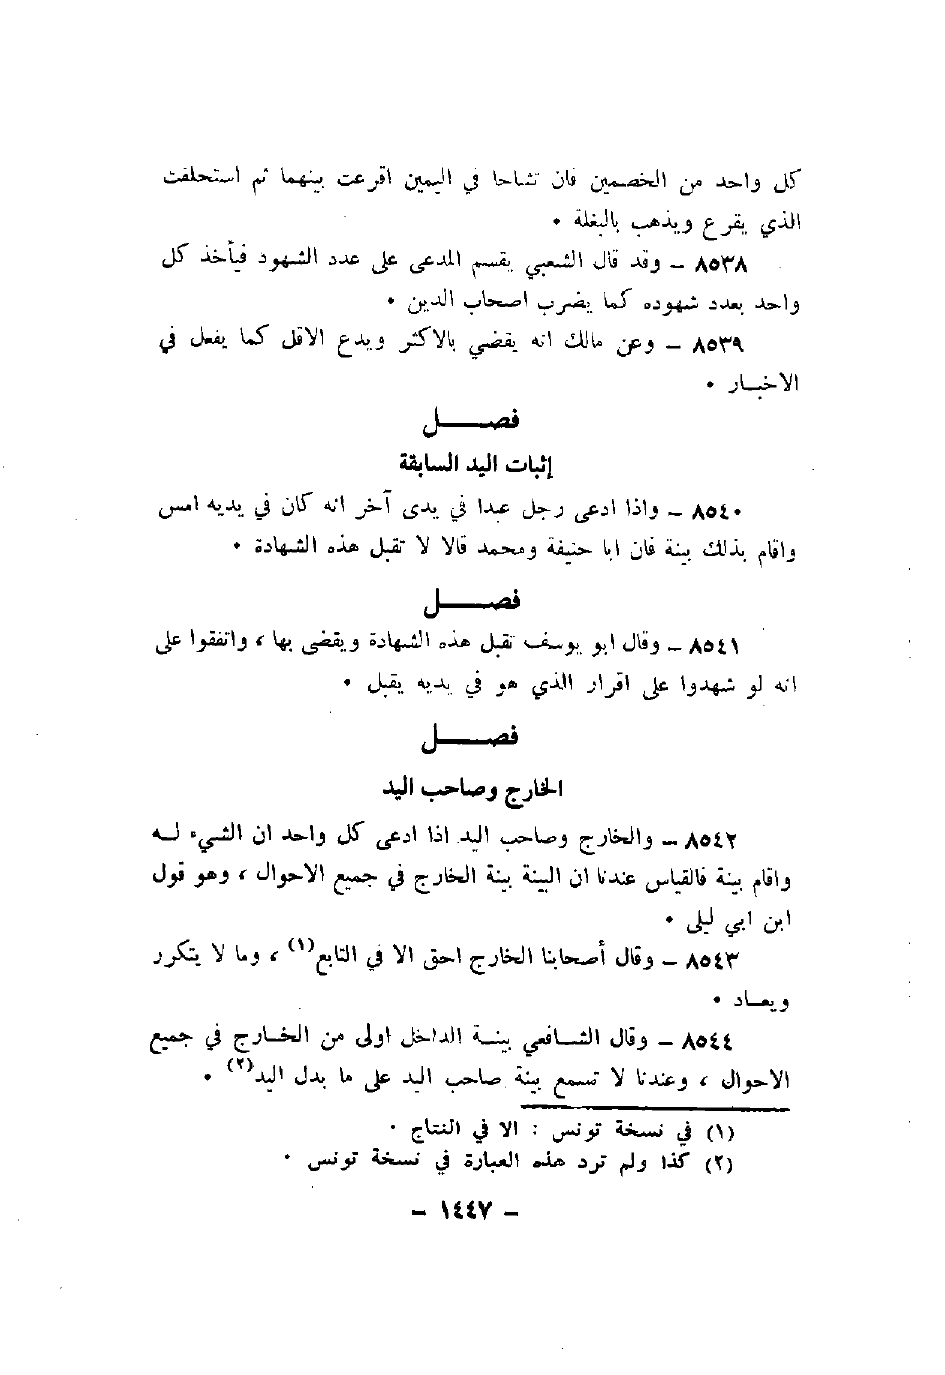 كل واحد من الخصمين فان تشاحا في اليمين اقرعت بينهما ثم استحلفت
الذي يقرع ويذهب بالبغلة ٠
٨٥٣٨ – وقد قال الشعبي يقسم المدعى على عدد الشهود فيأخذ كل
واحد بعدد شهوده كما يضرب اصحاب الدين ٠
٨٥٣٩ – وعن مالك انه يقضي بالاكثر ويدع الاقل كما يفعل في
الاخبـار ٠
فصـــــل
إثبات اليد السابقة
٨٥٤٠ – واذا ادعى رجل عبدا في يدى آخر انه كان في يديه امس
واقام بذلك بينة فان ابا حنيفة ومحمد قالا لا تقبل هذه الشهادة ٠
فصـــــل
٨٥٤١ – وقال ابو يوسف تقبل هذه الشهادة ويقضى بها ، واتفقوا على
انه لو شهدوا على اقرار الذي هو في يديه يقبل ٠
فصـــــل
الخارج وصاحب اليد
٨٥٤٢ – والخارج وصاحب اليد اذا ادعى كل واحد ان الشيء لـه
واقام بينة فالقياس عندنا ان البينة بينة الخارج في جميع الاحوال ، وهو قول
ابن ابي ليلى ٠
٨٥٤٣ – وقال أصحابنا الخارج احق الا في التابع(١) ، وما لا يتكرر
ويعـاد ٠
٨٥٤٤ – وقال الشـافعي بينـة الداخل اولى من الخـارج في جميع
الاحوال ، وعندنا لا تسمع بينة صاحب اليد على ما بدل اليد(٢) ٠
(١) في نسخة تونس : الا في النتاج ٠
(٢) كذا ولم ترد هذه العبارة في نسخة تونس ٠
– ١٤٤٧ –